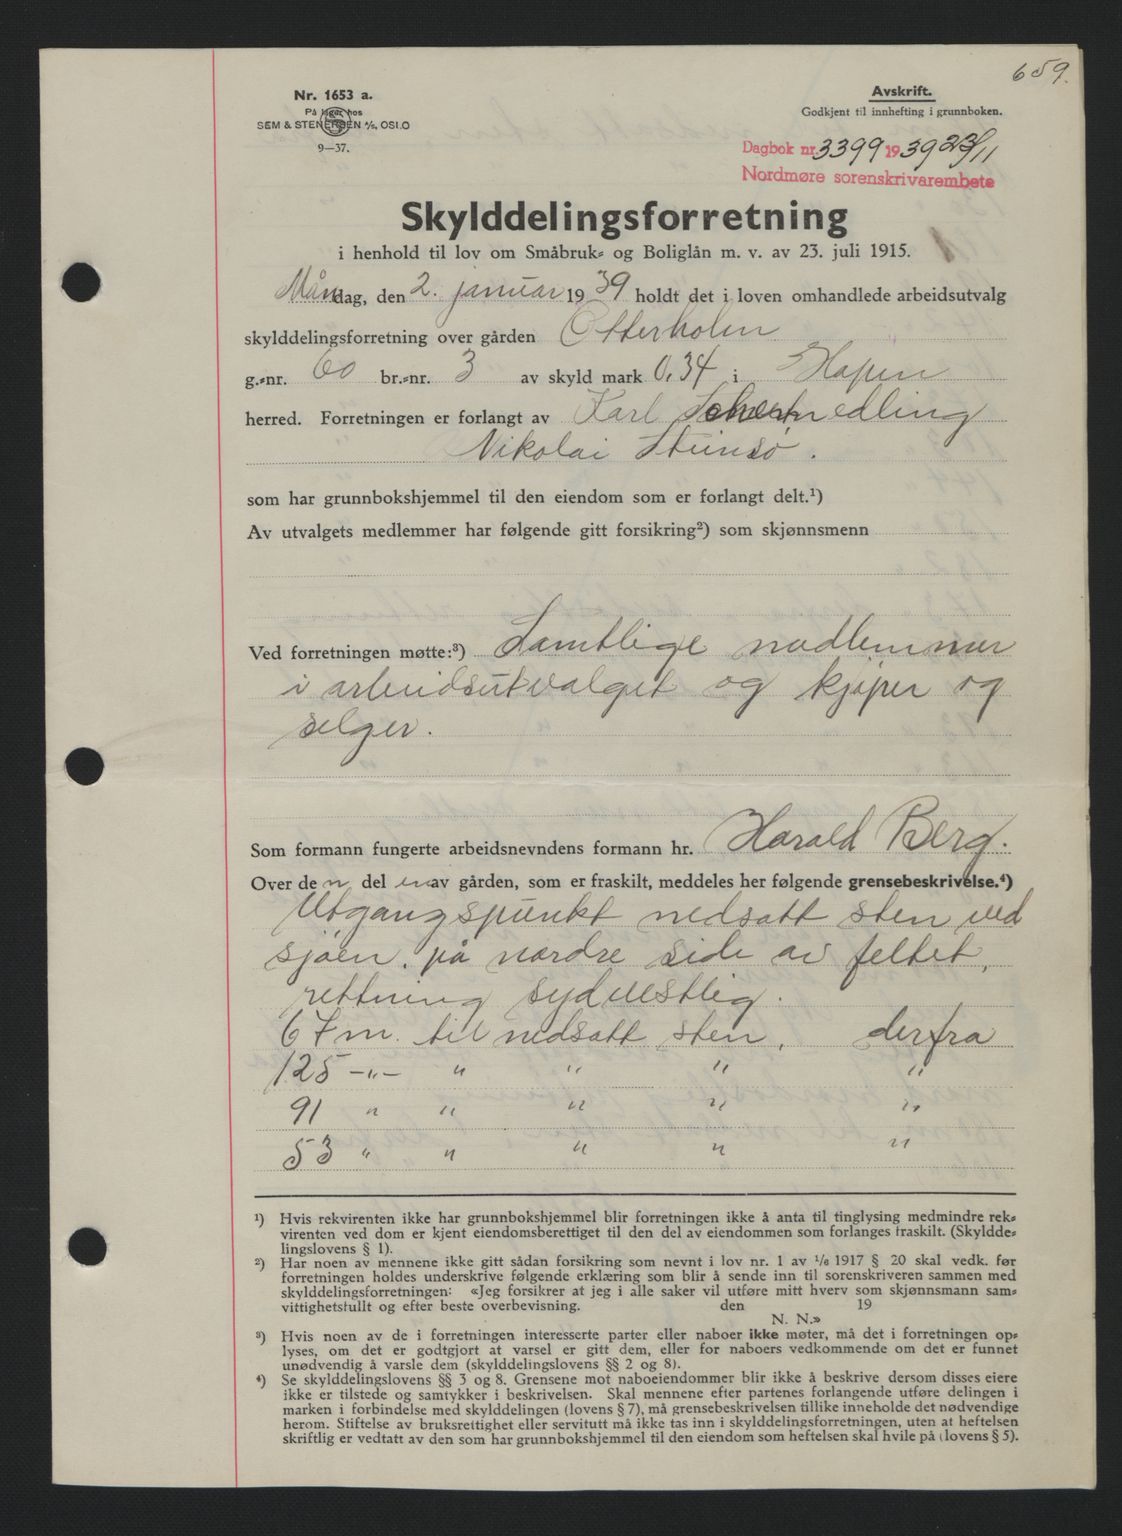 659.
Nr. 1653 a.
På lager hos
SEM & STENERSEN A/S, OSLO
9-37.
Avskrift.
Godkjent til innhefting i grunnboken.
Dagbok nr. 3399 1939 23/11
Nordmøre sorenskrivarembete
Skylddelingsforretning
i henhold til lov om Småbruk- og Boliglån m. v. av 23. juli 1915.
Måndag, den 2. januar 1939 holdt det i loven omhandlede arbeidsutvalg
skylddelingsforretning over gården Otterholm
g.-nr. 60 br.-nr. 3 av skyld mark 0,34 i Hopen
herred. Forretningen er forlangt av Karl
Nikolai Steinsø.
som har grunnbokshjemmel til den eiendom som er forlangt delt.¹)
Av utvalgets medlemmer har følgende gitt forsikring²) som skjønnsmenn
Ved forretningen møtte:³) Samtlige medlemmer
i arbeidsutvalget og kjøper og
selger.
Som formann fungerte arbeidsnevndens formann hr. Harald Berg.
Over den del en av gården, som er fraskilt, meddeles her følgende grensebeskrivelse.⁴)
Utgangspunkt nedsatt sten ved
sjøen, på nordre side av feltet,
rettning sydvestlig.
67 m. til nedsatt sten, derfra
125 -"- " " " "
91 " " " " "
53 " " " " "
¹) Hvis rekvirenten ikke har grunnbokshjemmel blir forretningen ikke å anta til tinglysing medmindre rek-
virenten ved dom er kjent eiendomsberettiget til den del av eiendommen som forlanges fraskilt. (Skyldde-
lingslovens § 1).
²) Har noen av mennene ikke gitt sådan forsikring som nevnt i lov nr. 1 av 1/6 1917 § 20 skal vedk. før
forretningen holdes underskrive følgende erklæring som blir å sende inn til sorenskriveren sammen med
skylddelingsforretningen: «Jeg forsikrer at jeg i alle saker vil utføre mitt hverv som skjønnsmann sam-
vittighetsfullt og efter beste overbevisning. den 19
N. N.»
³) Hvis noen av de i forretningen interesserte parter eller naboer ikke møter, må det i forretningen op-
lyses, om det er godtgjort at varsel er gitt dem, eller for naboers vedkommende om det er funnet
unødvendig å varsle dem (skylddelingslovens §§ 2 og 8).
⁴) Se skylddelingslovens §§ 3 og 8. Grensene mot naboeiendommer blir ikke å beskrive dersom disses eiere
ikke er tilstede og samtykker i beskrivelsen. Skal mennene efter partenes forlangende utføre delingen i
marken i forbindelse med skylddelingen (lovens § 7), må grensebeskrivelsen tillike inneholde det nødvendige
herom. Stiftelse av bruksrettighet eller servitutt må ikke tas inn i skylddelingsforretningen, uten at heftelsen
skriftlig er vedtatt av den som har grunnbokshjemmel til den eiendom som heftelsen skal hvile på (lovens § 5).